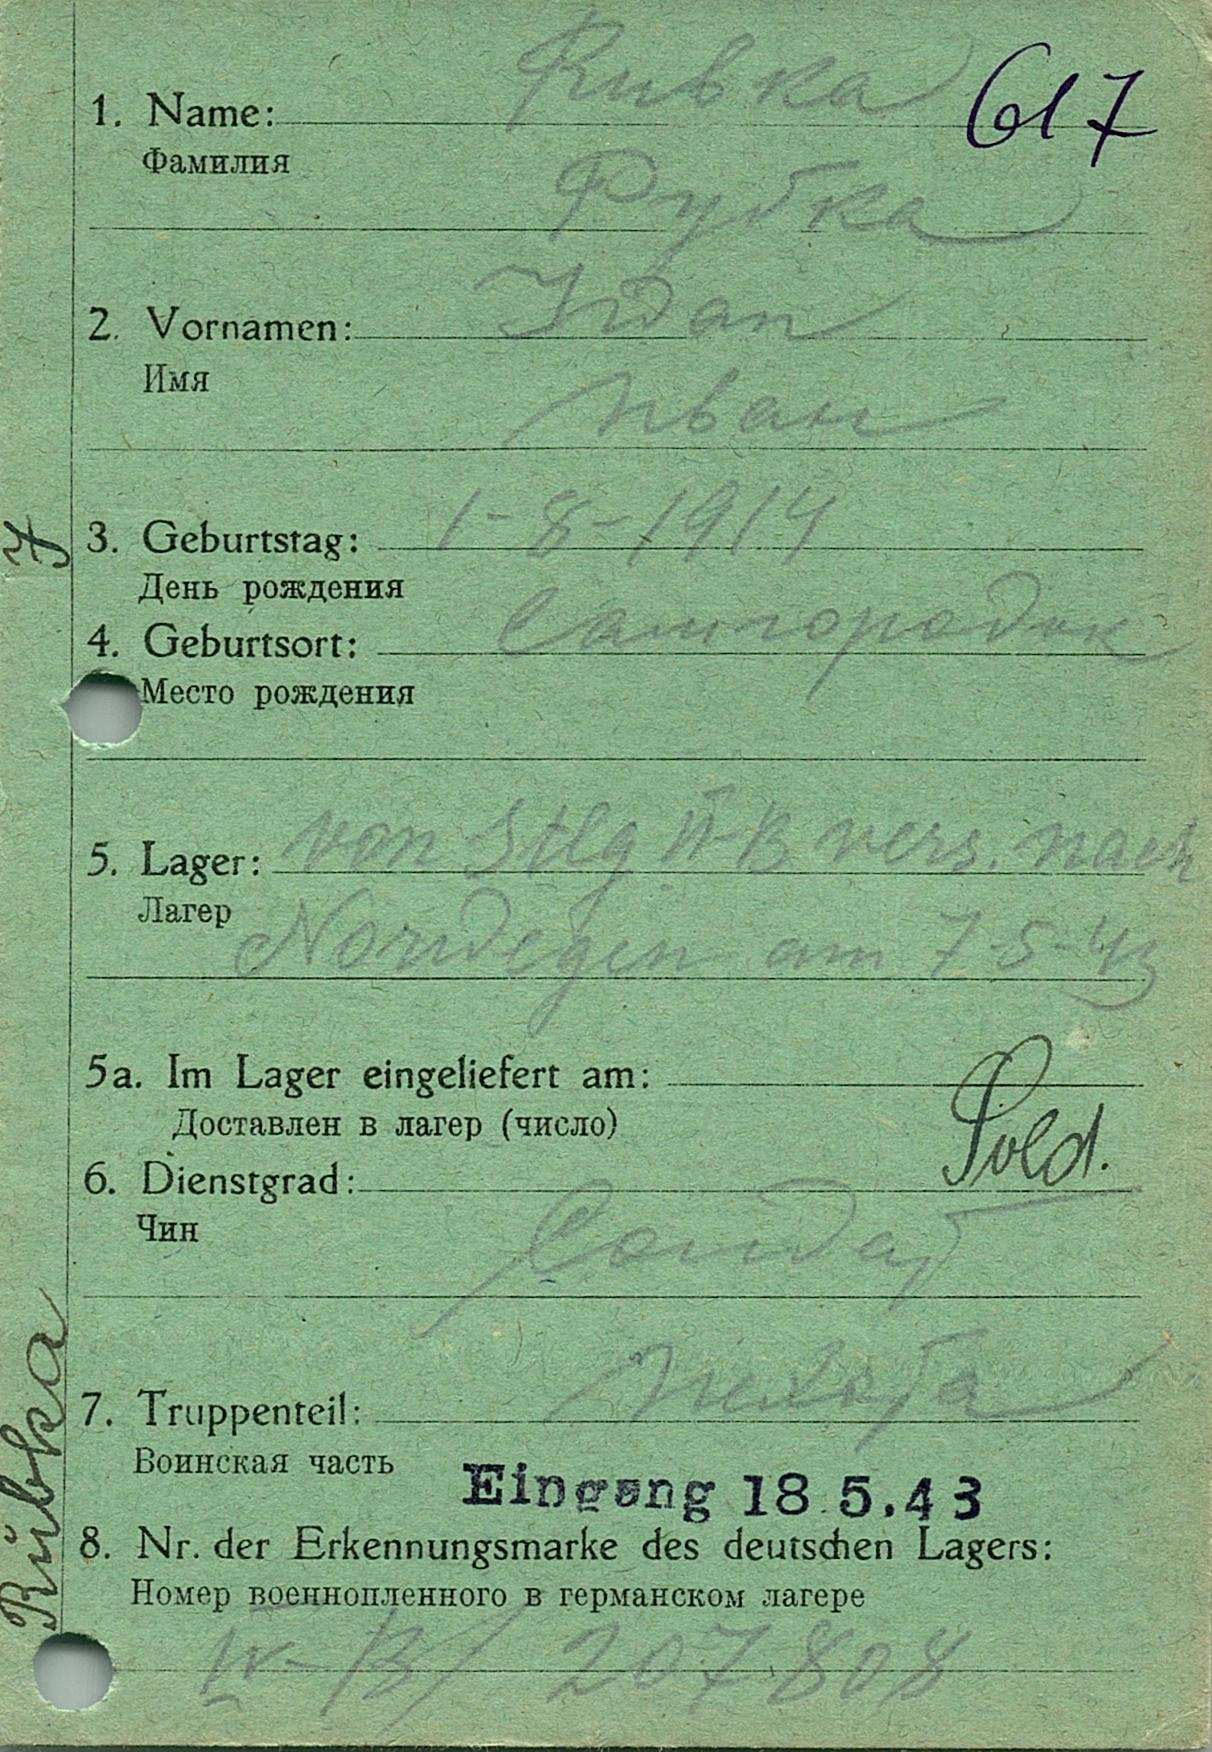 617
1. Name: Rubka
Фамилия
Рубка
2. Vornamen: Iwan
Имя
Иван
3. Geburtstag: 1-8-1914
День рождения
4. Geburtsort: Самгородок
Место рождения
5. Lager: von Stlg IV-B vers. nach
Лагер
Norwegen am 7-5-43
5a. Im Lager eingeliefert am:
Доставлен в лагер (число)
Sold.
6. Dienstgrad:
Чин
Солдат
7. Truppenteil: Пехота
Воинская часть
Eingang 18.5.43
8. Nr. der Erkennungsmarke des deutschen Lagers:
Номер военнопленного в германском лагере
IV-B/ 207808
Rübka
7